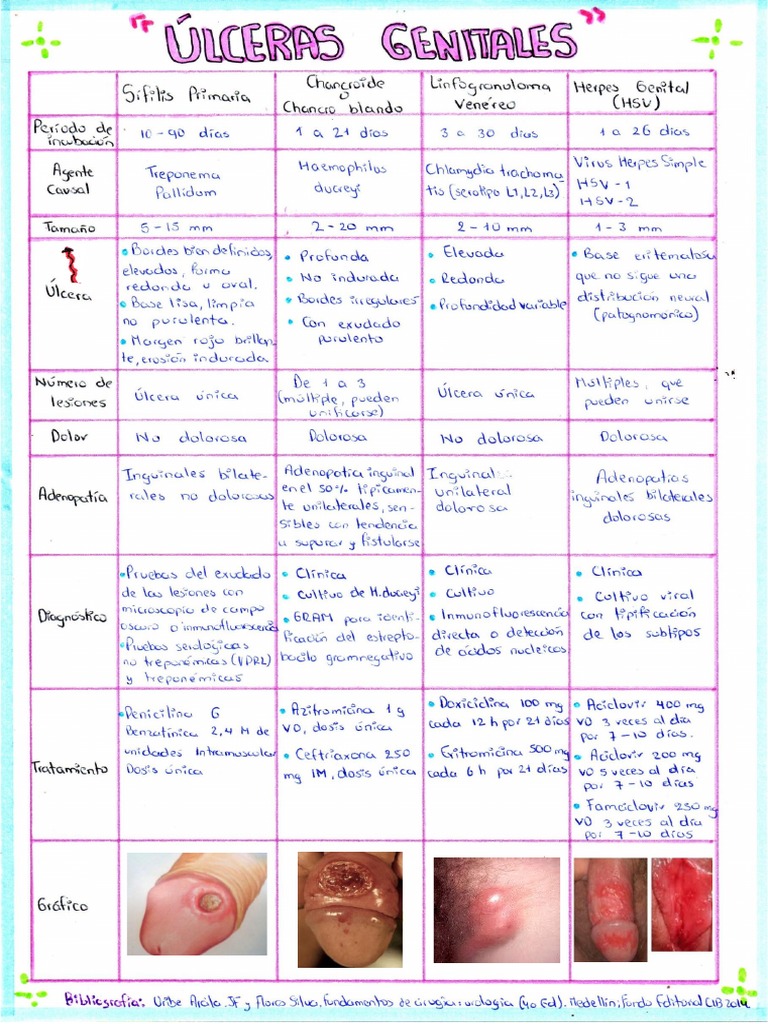 "ÚLCERAS GENITALES"
Sífilis Primaria
Chancroide
o
Chancro blando
Linfogranuloma
Venéreo
Herpes Genital
(HSV)
Período de
incubación
10-90 días
1 a 21 días
3 a 30 días
1 a 26 días
Agente
Causal
Treponema
Pallidum
Haemophilus
ducreyi
Chlamydia trachoma-
tis (serotipo L1, L2, L3)
Virus Herpes Simple
HSV-1
HSV-2
Tamaño
5-15 mm
2-20 mm
2-10 mm
1-3 mm
Úlcera
• Bordes bien definidos,
elevados, forma
redonda u oval.
• Base lisa, limpia
no purulenta.
• Margen rojo brillan
te, erosión indurada
• Profunda
• No indurada
• Bordes irregulares
• Con exudado
purulento
• Elevada
• Redonda
• Profundidad variable
• Base eritematosa
que no sigue una
distribución neural
(patognomónico)
Número de
lesiones
Úlcera única
De 1 a 3
(múltiple, pueden
unificarse)
Úlcera única
Múltiples, que
pueden unirse
Dolor
No dolorosa
Dolorosa
No dolorosa
Dolorosa
Adenopatía
Inguinales bilate-
rales no dolorosas
Adenopatía inguinal
en el 50% típicamen-
te unilaterales, sen-
sibles con tendencia
a supurar y fistularse
Inguinal
unilateral
dolorosa
Adenopatías
inguinales bilaterales
dolorosas
Diagnóstico
• Pruebas del exudado
de las lesiones con
microscopio de campo
oscuro o inmunofluorescencia
• Pruebas serológicas
no treponémicas (VDRL)
y treponémicas
• Clínica
• Cultivo de H. ducreyi
• GRAM para identi-
ficación del estrepto-
bacilo gramnegativo
• Clínica
• Cultivo
• Inmunofluorescencia
directa o detección
de ácidos nucleicos
• Clínica
• Cultivo viral
con tipificación
de los subtipos
Tratamiento
• Penicilina G
Benzatínica 2,4 M de
unidades Intramuscular
Dosis única
• Azitromicina 1 g
VO, dosis única
• Ceftriaxona 250
mg IM, dosis única
• Doxiciclina 100 mg
cada 12 h por 21 días
• Eritromicina 500 mg
cada 6 h por 21 días
• Aciclovir 400 mg
VO 3 veces al día
por 7-10 días.
• Aciclovir 200 mg
VO 5 veces al día
por 7-10 días
• Famciclovir 250 mg
VO 3 veces al día
por 7-10 días
Gráfico
Bibliografía: Uribe Arcila, JF y Flores Silva, Fundamentos de cirugía: urología (4o Ed). Medellín; Fondo Editorial CIB 2014